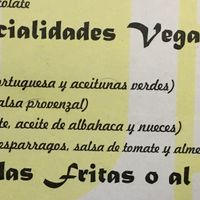 olate
cialidades Vega
ortuguesa y aceitunas verdes)
alsa provenzal)
te, aceite de albahaca y nueces)
esparragos, salsa de tomate y alme
das Fritas o al